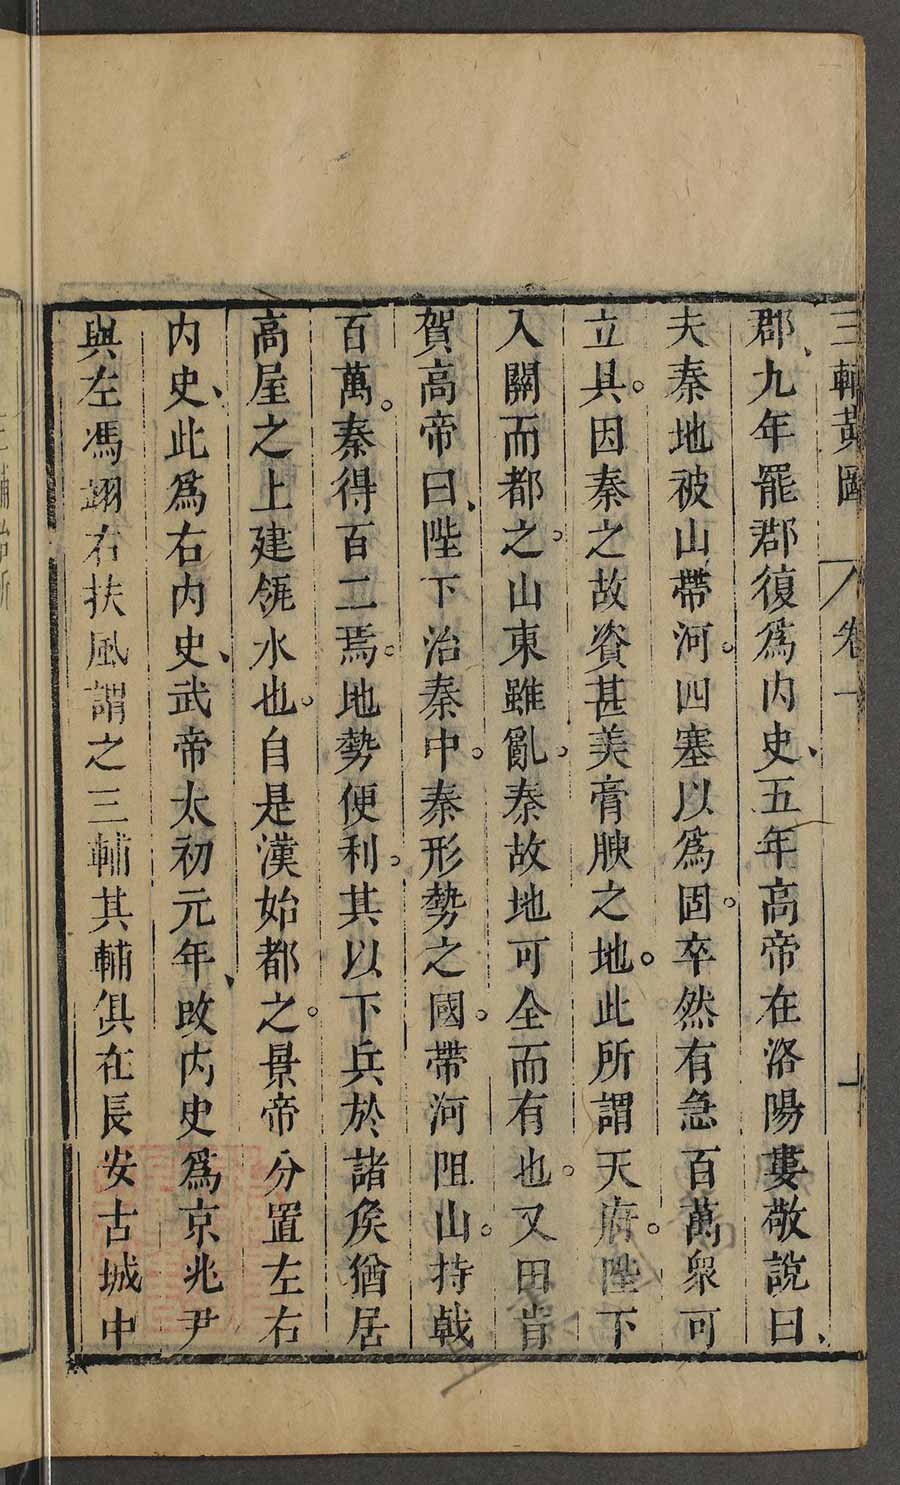 三輔黃圖 卷一 一
郡、九年罷郡復爲內史、五年高帝在洛陽婁敬說曰、
夫秦地被山帶河。四塞以爲固。卒然有急百萬衆可
立具。因秦之故資甚美膏腴之地。此所謂天府。陛下
入關而都之。山東雖亂。秦故地可全而有也。又田肯
賀高帝曰、陛下治秦中。秦形勢之國。帶河阻山。持戟
百萬。秦得百二焉。地勢便利。其以下兵於諸矦猶居
高屋之上建瓴水也。自是漢始都之。景帝分置左右
內史、此爲右內史、武帝太初元年、改內史爲京兆尹
與左馮翊右扶風謂之三輔其輔俱在長安古城中